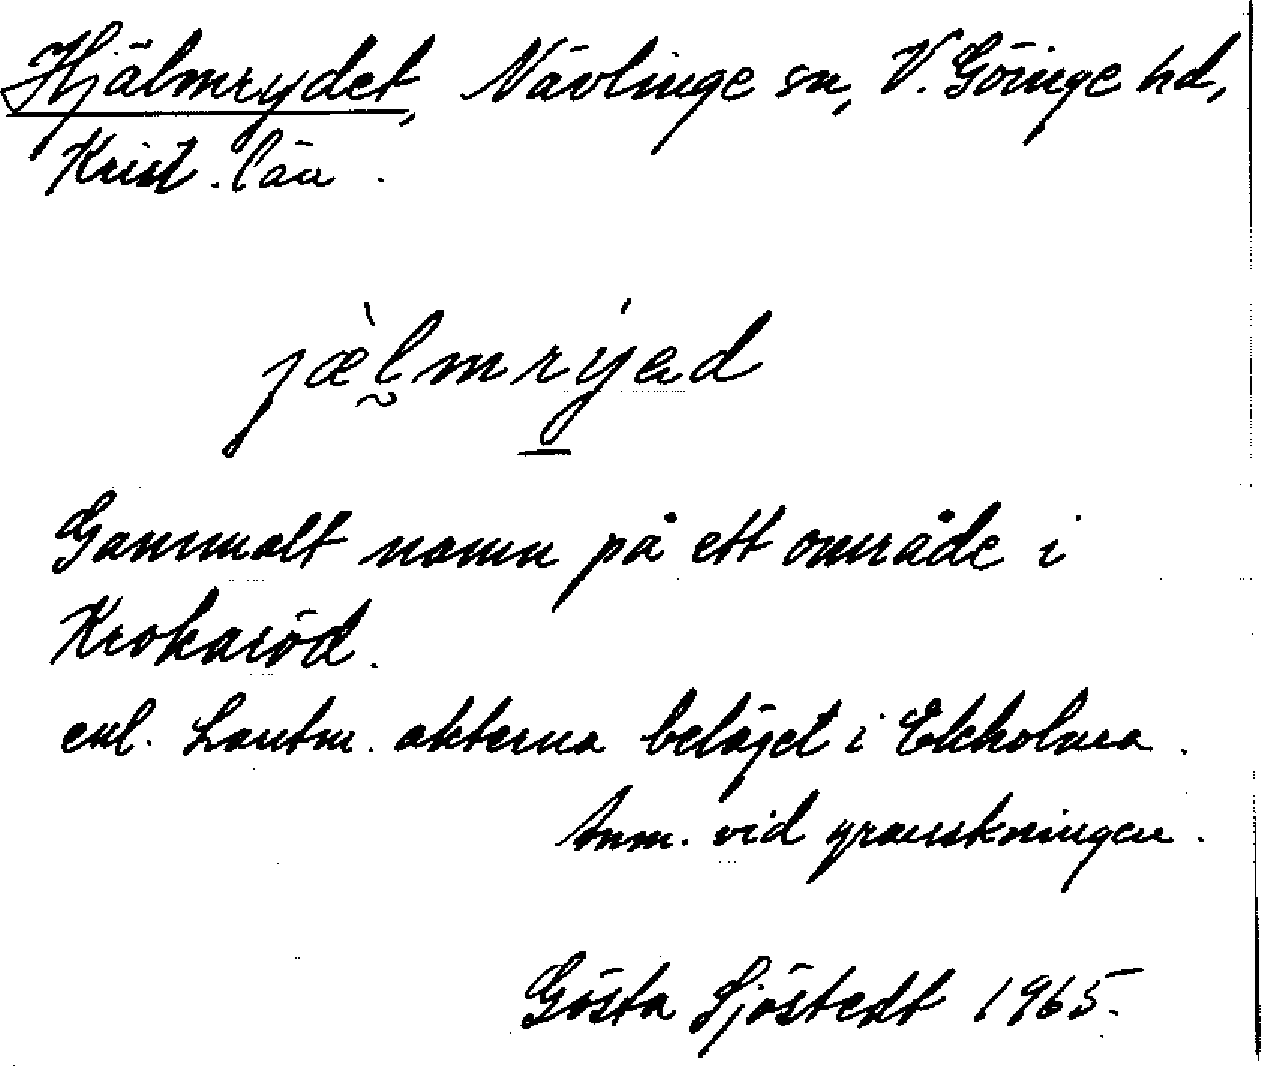 Hjälmrydet, Nävlinge sn, V. Göinge hd,
Krist. län.
jæ̀l̰mrýəd
Gammalt namn på ett område i
Krokaröd.
enl. Lantm. akterna beläget i Ekholma.
Anm. vid granskningen.
Gösta Sjöstedt 1965.